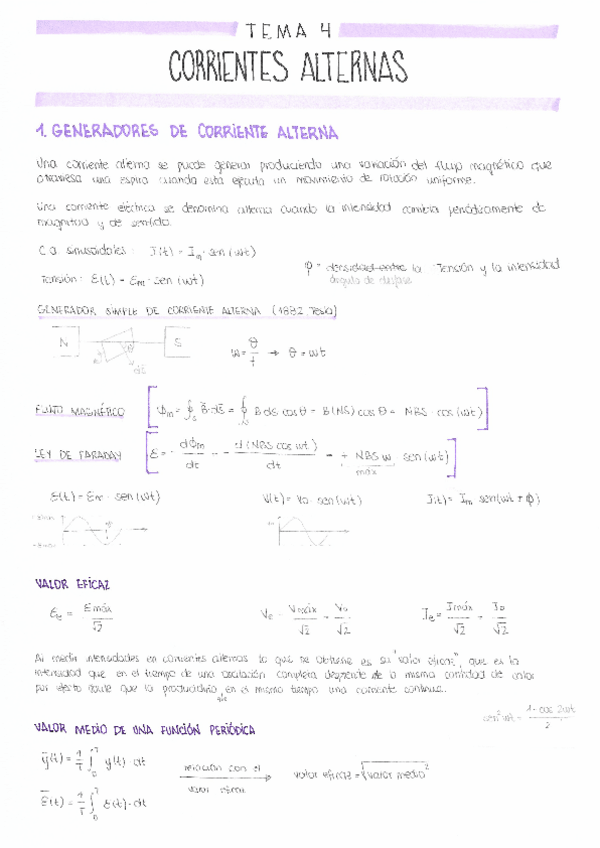 TEMA 4
CORRIENTES ALTERNAS
1. GENERADORES DE CORRIENTE ALTERNA
Una corriente alterna se puede generar produciendo una variación del flujo magnético que
atraviesa una espira cuando esta ejecuta un movimiento de rotación uniforme.
Una corriente eléctrica se denomina alterna cuando la intensidad cambia periódicamente de
magnitud y de sentido.
C.a. sinusoidales: I(t) = Im · sen (wt)
φ = densidad entre la Tensión y la intensidad
ángulo de desfase
Tensión: ε(t) = εm · sen (wt)
GENERADOR SIMPLE DE CORRIENTE ALTERNA (1882 Tesla)
N S
θ
w = θ/t → θ = wt
FLUJO MAGNÉTICO
Φm = ∮s B · ds = ∮s B ds cos θ = B(NS) cos θ = NBS · cos (wt)
LEY DE FARADAY
ε = - dΦm/dt = - d(NBS cos wt)/dt → + NBS w sen (wt)
máx
ε(t) = εm · sen (wt) V(t) = Vo · sen (wt) I(t) = Im sen (wt + φ)
VALOR EFICAZ
εe = εmáx/√2 Ve = Vmáx/√2 = Vo/√2 Ie = Imáx/√2 = Io/√2
Al medir intensidades en corrientes alternas lo que se obtiene es su "valor eficaz", que es la
intensidad que en el tiempo de una oscilación completa desprende de la misma cantidad de calor
por efecto Joule que la produciría en el mismo tiempo una corriente continua.
sen² wt = 1 - cos 2wt / 2
VALOR MEDIO DE UNA FUNCIÓN PERIÓDICA
y(t) = 1/T ∫₀ᵀ y(t) · dt
relación con el
valor eficaz = √valor medio²
ε(t) = 1/T ∫₀ᵀ ε(t) · dt